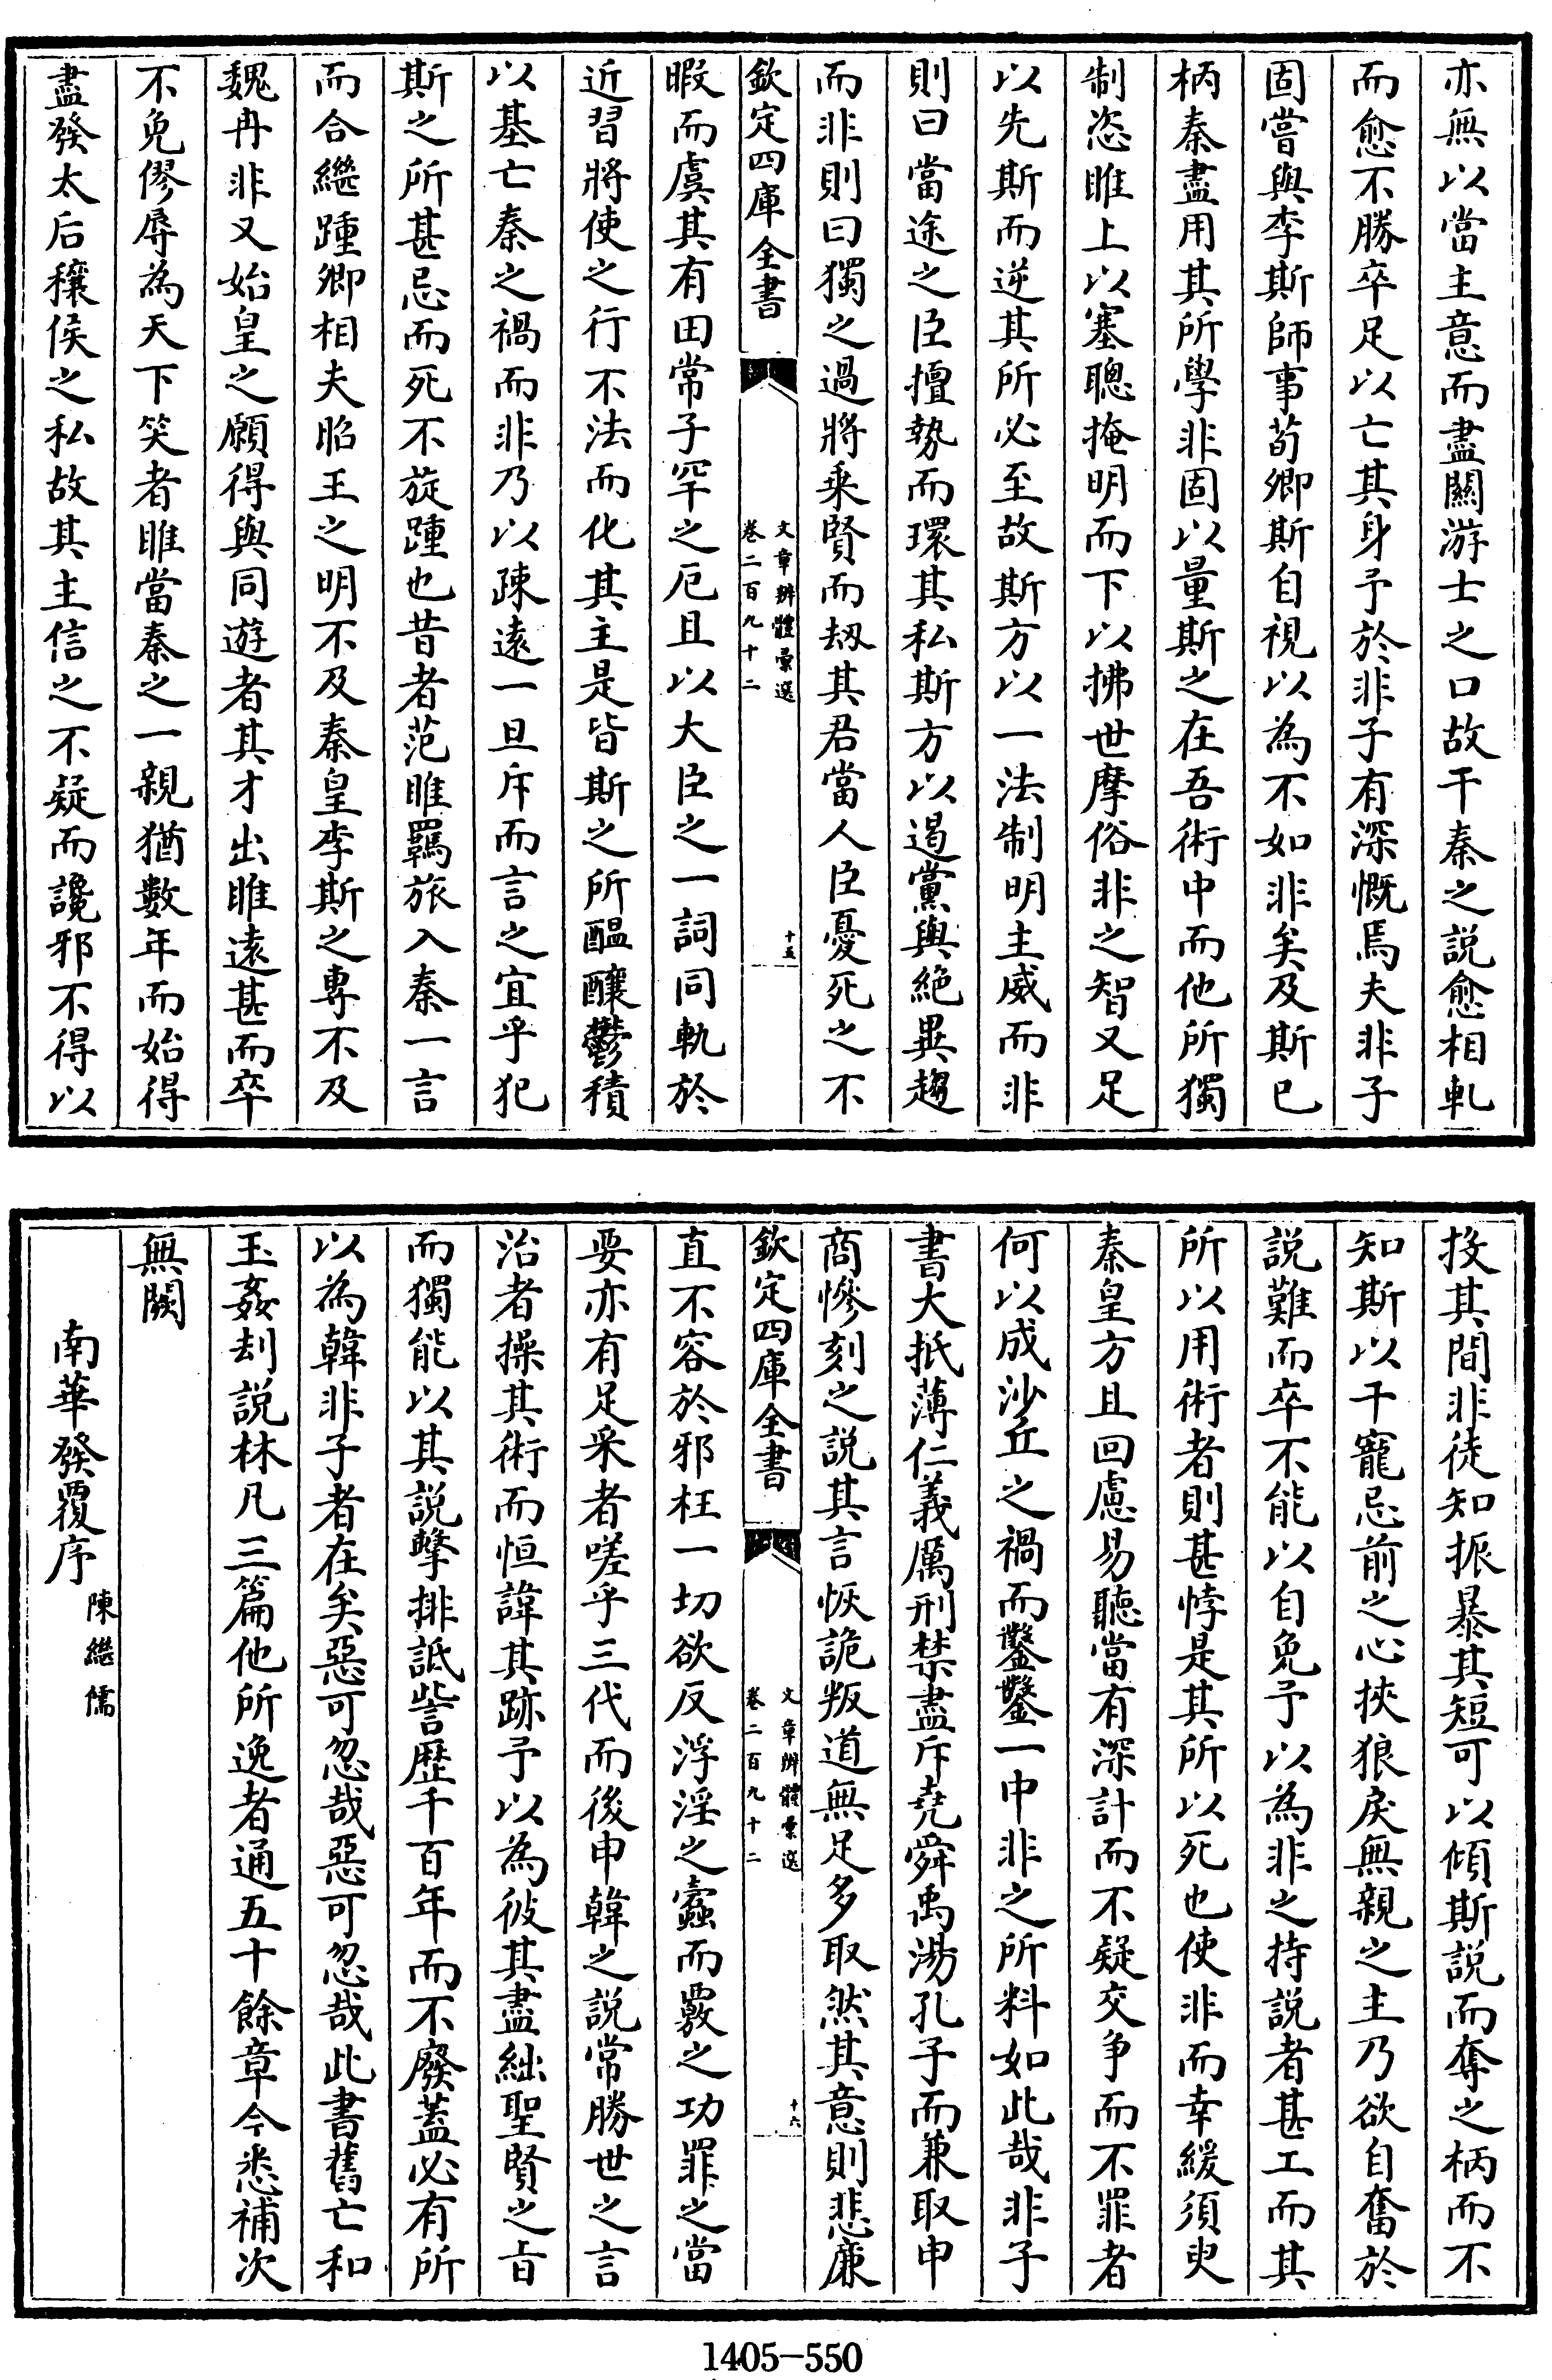 亦無以當主意而盡關游士之口故干秦之說愈相軋
而愈不勝卒足以亡其身予於非子有深慨焉夫非子
固嘗與李斯師事荀卿斯自視以為不如非矣及斯已
柄秦盡用其所學非固以量斯之在吾術中而他所獨
制恣睢上以塞聰掩明而下以拂世摩俗非之智又足
以先斯而逆其所必至故斯方以一法制明主威而非
則曰當途之臣擅勢而環其私斯方以遏黨與絕異趨
而非則曰獨之過將乘賢而刼其君當人臣憂死之不
欽定四庫全書
文章辨體彙選
卷二百九十二
十五
暇而虞其有田常子罕之厄且以大臣之一詞同軌於
近習將使之行不法而化其主是皆斯之所醞釀鬱積
以基亡秦之禍而非乃以疎遠一旦斥而言之宜乎犯
斯之所甚忌而死不旋踵也昔者范睢羈旅入秦一言
而合繼踵卿相夫昭王之明不及秦皇李斯之專不及
魏冉非又始皇之願得與同遊者其才出睢遠甚而卒
不免僇辱為天下笑者睢當秦之一親猶數年而始得
盡發太后穰侯之私故其主信之不疑而讒邪不得以
投其間非徒知振暴其短可以傾斯說而奪之柄而不
知斯以干寵忌前之心挾狼戾無親之主乃欲自奮於
說難而卒不能以自免予以為非之持說者甚工而其
所以用術者則甚悖是其所以死也使非而幸緩須臾
秦皇方且回慮易聽當有深計而不疑交爭而不罪者
何以成沙丘之禍而鑿鑿一中非之所料如此哉非子
書大抵薄仁義厲刑禁盡斥堯舜禹湯孔子而兼取申
商慘刻之說其言恢詭叛道無足多取然其意則悲廉
欽定四庫全書
文章辨體彙選
卷二百九十二
十六
直不容於邪枉一切欲反浮淫之蠹而覈之功罪之當
要亦有足采者嗟乎三代而後申韓之說常勝世之言
治者操其術而恒諱其跡予以為彼其盡絀聖賢之旨
而獨能以其說擊排詆訾歷千百年而不廢蓋必有所
以為韓非子者在矣惡可忽哉惡可忽哉此書舊亡和
玉姦刦說林凡三篇他所逸者通五十餘章今悉補次
無闕
南華發覆序
陳繼儒
1405-550